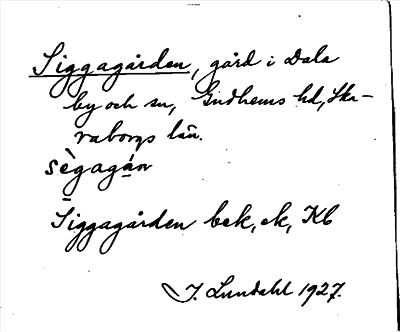 Siggagården, gård i Dala
by och sn, Gudhems hd, Ska-
raborgs län.
sègagán
Siggagården bek, ek, Kb
J. Lundahl 1927.